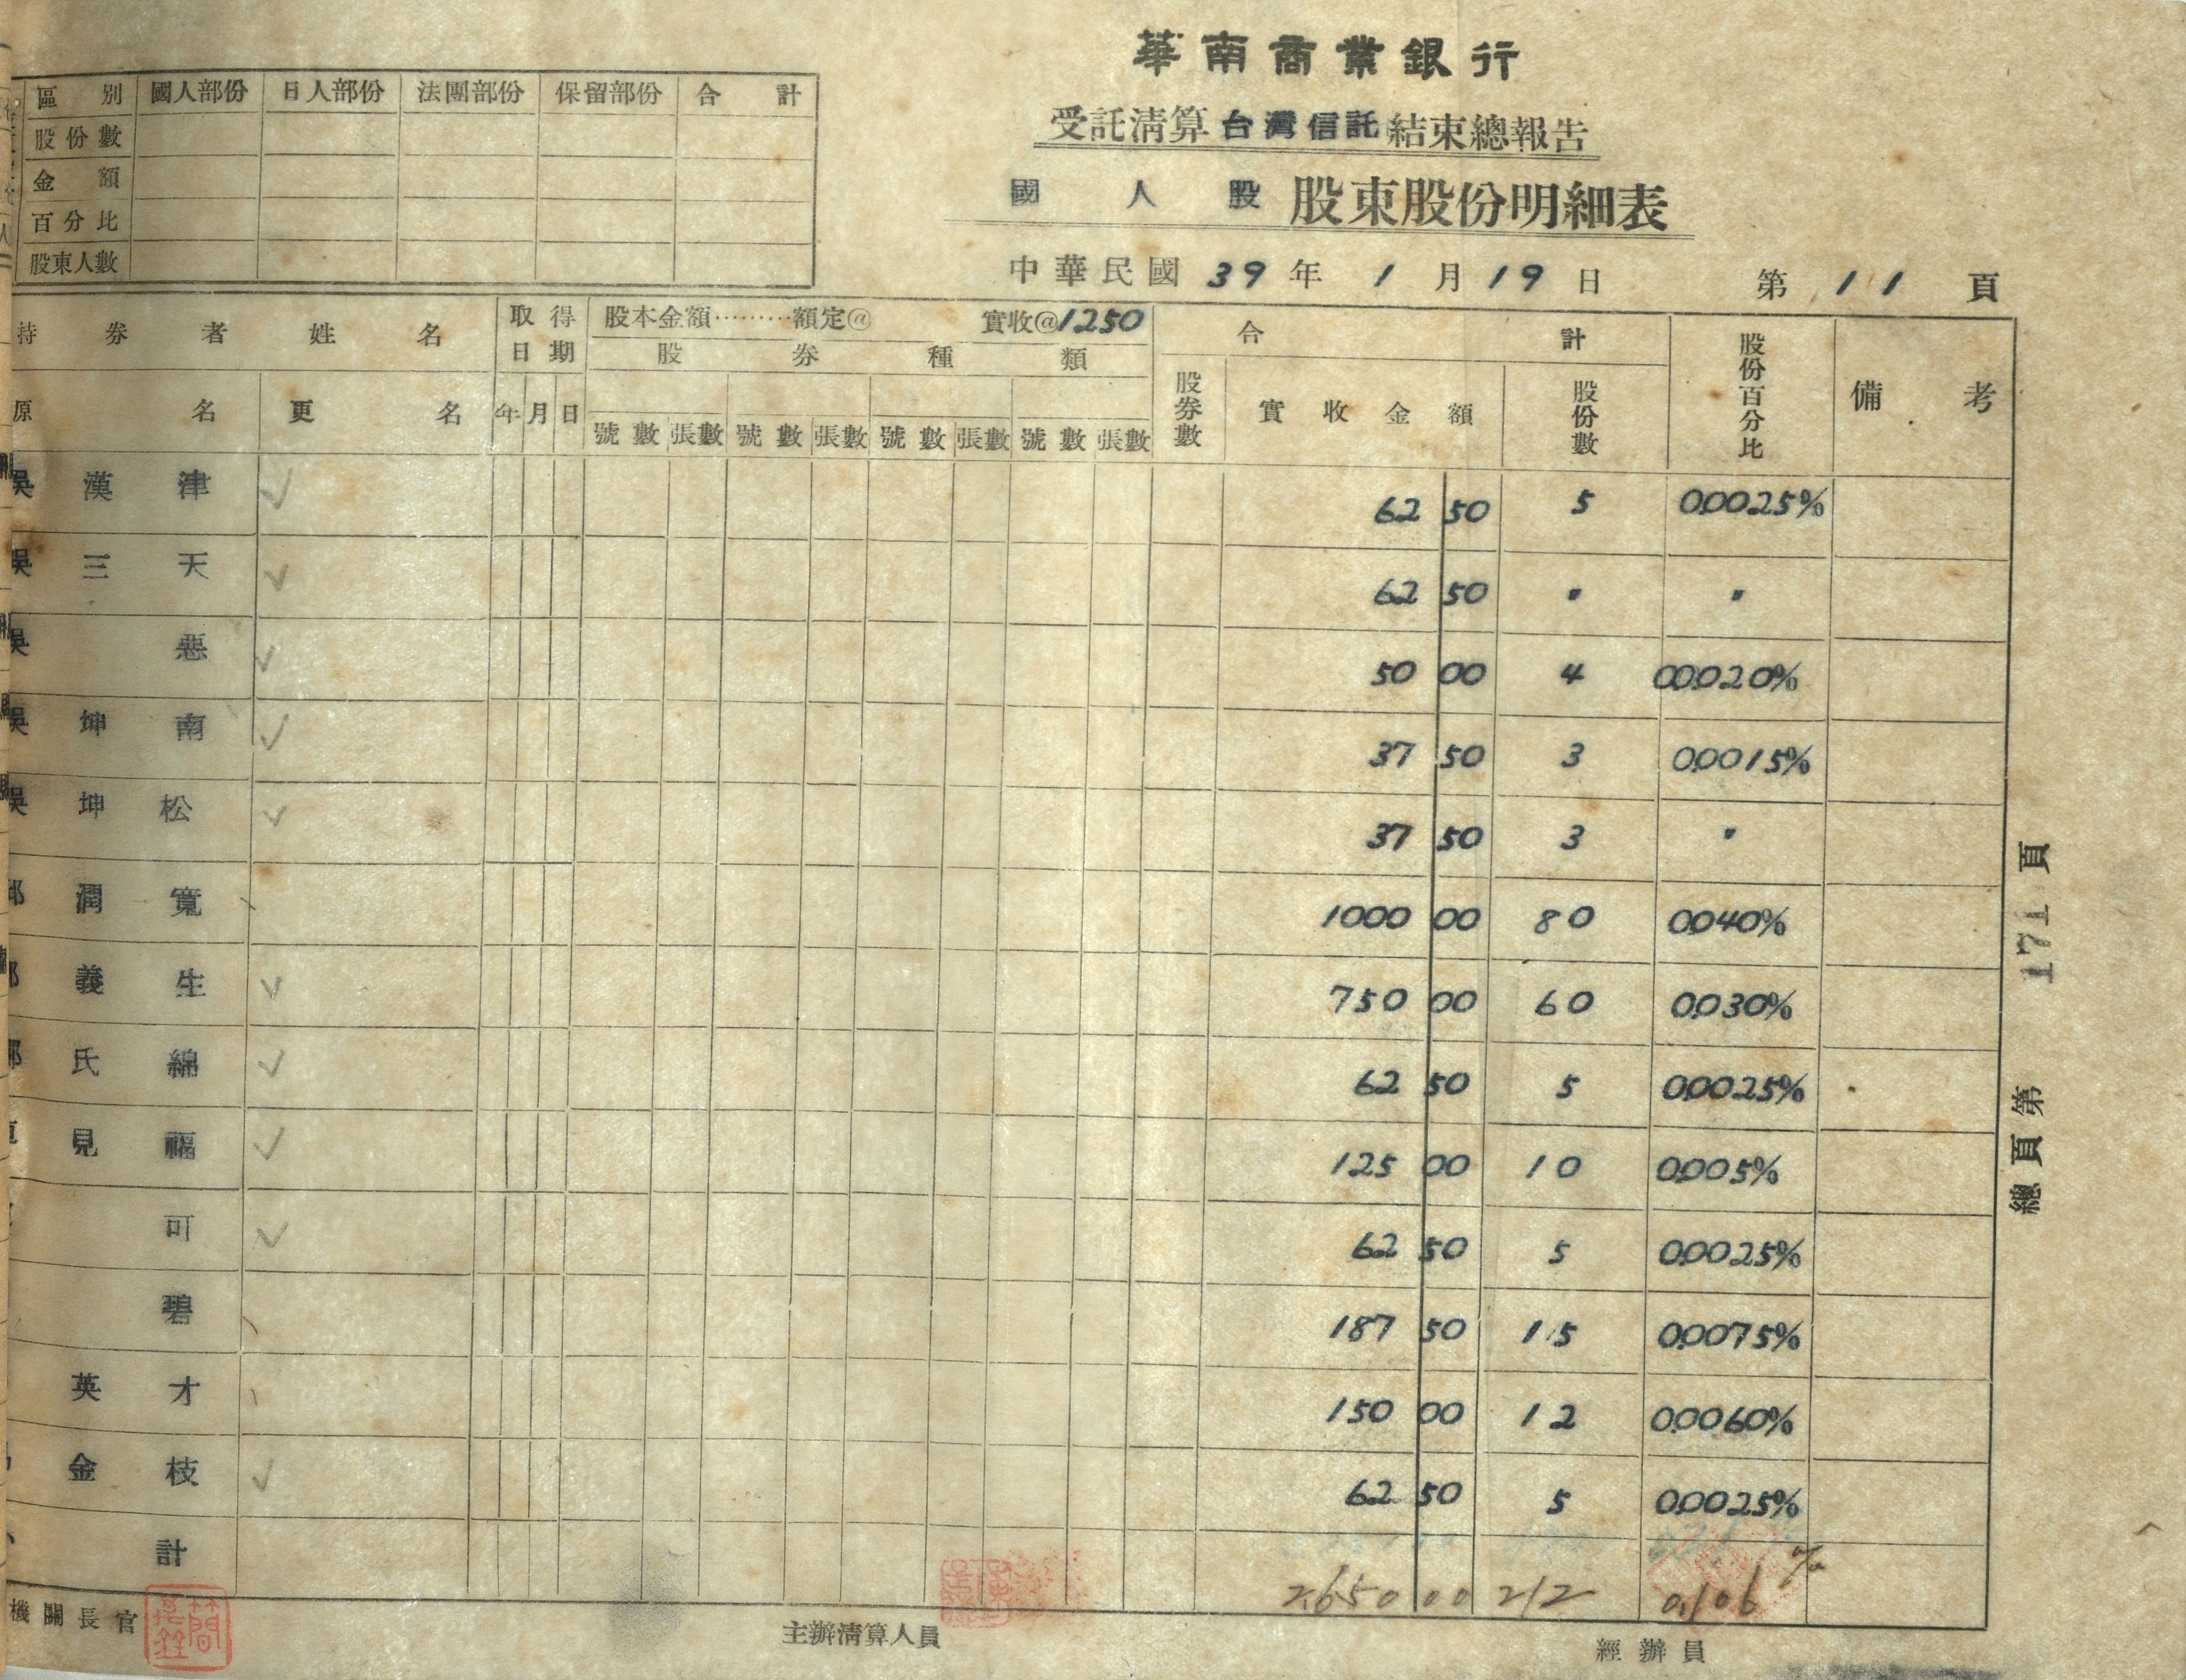 華南商業銀行
受託清算台灣信託結束總報告
國人股 股東股份明細表
中華民國39年1月19日 第11頁
區別 國人部份 日人部份 法團部份 保留部份 合計
股份數
金額
百分比
股東人數
持券者姓名 取得日期 股本金額………額定@ 實收@1250 合計 股份百分比 備考
股券種類
原名 更名 年 月 日 號數 張數 號數 張數 號數 張數 號數 張數 股券數 實收金額 股份數
吳漢津 62 50 5 0.0025%
吳三天 62 50 〃 〃
吳惡 50 00 4 0.0020%
吳坤南 37 50 3 0.0015%
吳坤松 37 50 3 〃
邱潤寬 1000 00 80 0.040%
義生 750 00 60 0.030%
氏綿 62 50 5 0.0025%
見福 125 00 10 0.005%
可 62 50 5 0.0025%
碧 187 50 15 0.0075%
英才 150 00 12 0.0060%
金枝 62 50 5 0.0025%
計 2,650 00 212 0.106%
總頁第 171 頁
機關長官 主辦清算人員 經辦員